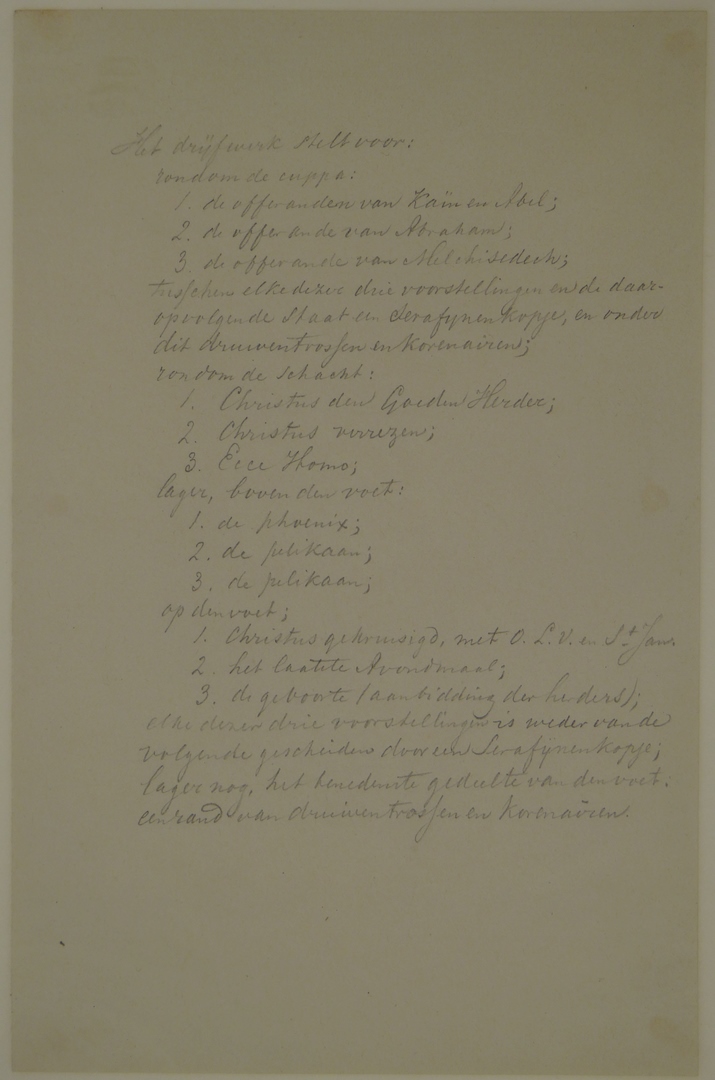 Het drijfwerk stelt voor:
rondom de cuppa:
1. de offeranden van Kaïn en Abel;
2. de offerande van Abraham;
3. de offerande van Melchisedech;
tusschen elke dezer drie voorstellingen en de daar-
opvolgende staat een Serafijnenkopje, en onder
dit druiventrossen en korenairen;
rondom de schacht:
1. Christus den Goeden Herder;
2. Christus verrezen;
3. Ecce Homo;
lager, boven den voet:
1. de phoenix;
2. de pelikaan;
3. de pelikaan;
op den voet;
1. Christus gekruisigd, met O. L. V. en St Jan.
2. het laatste Avondmaal;
3. de geboorte (aanbidding der herders);
elke dezer drie voorstellingen is weder van de
volgende gescheiden door een Serafijnenkopje;
lager nog, het benedenste gedeelte van den voet:
een rand van druiventrossen en korenairen.